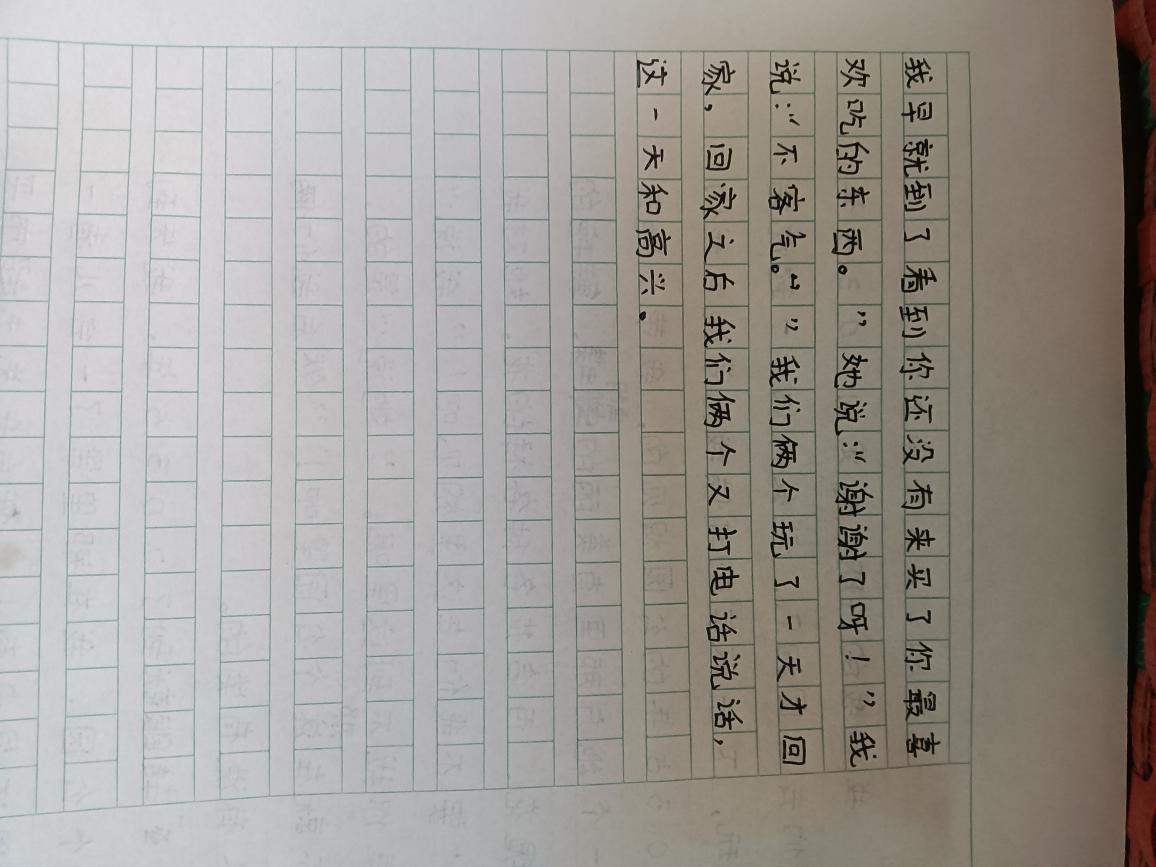 我早就到了看到你还没有来买了你最喜
欢吃的东西。”她说:“谢谢了呀!”我
说:“不客气。”“我们俩个玩了一天才回
家,回家之后我们俩个又打电话说话,
这一天和高兴.